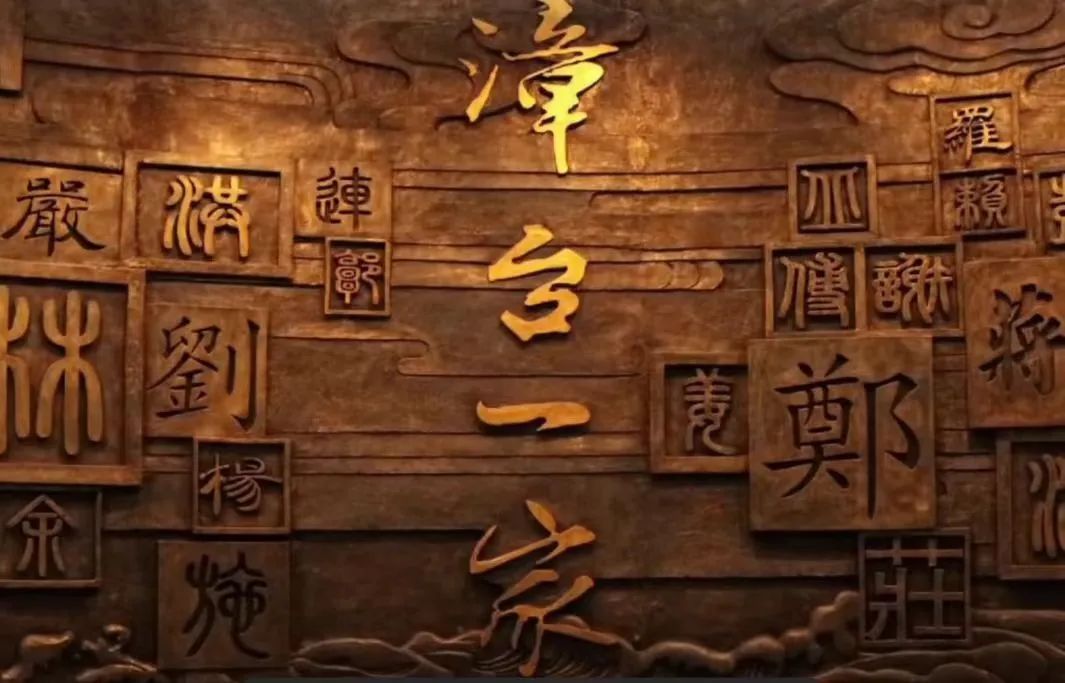 漳台一家
嚴
洪
連
郭
林
劉
楊
余
施
羅
賴
丘
傅
謝
蔣
姜
鄭
莊